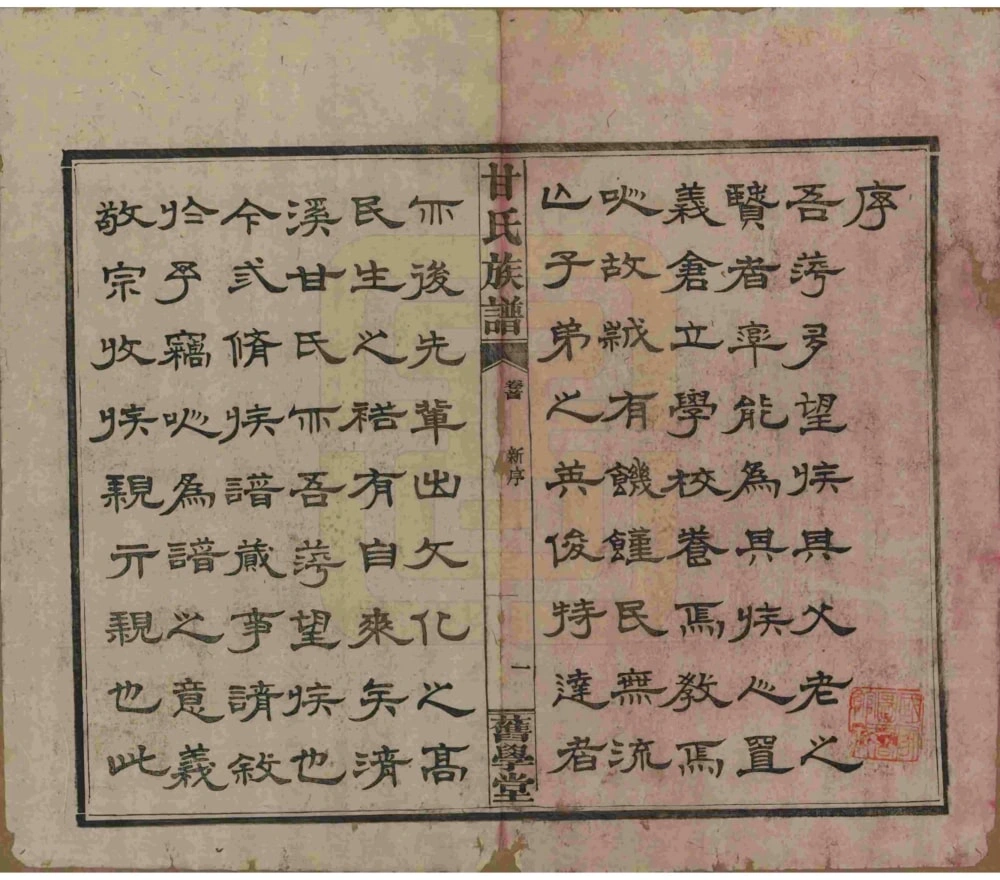 序
吾萍多望族其父老之
賢者率能為其族人置
義倉立學校養焉教焉
㕥故歲有饑饉民無流
亡子弟之英俊特達者
甘氏族譜 卷首 新序 一 舊學堂
亦後先輩出文化之高
民生之裕有自來矣清
溪甘氏亦吾萍望族也
今弍脩族譜蕆事請敘
於予竊㕥為譜之意義
敬宗收族親亓親也此